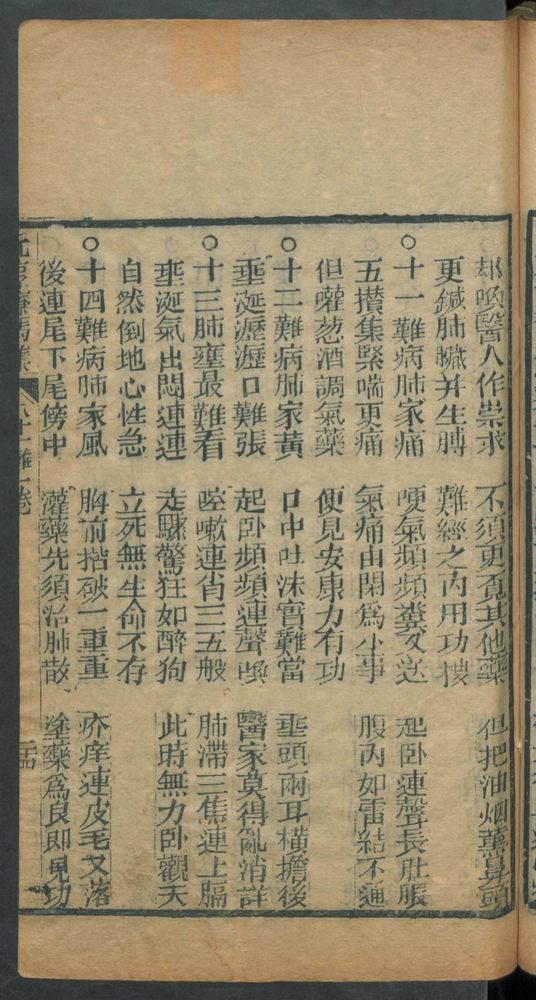 却喚醫人作祟求 不須更覓其他藥 但把油烟薰鼻頭
更鍼肺臟并生膊 難經之內用功搜
○十一難病肺家痛 哽氣頻頻糞又送 起卧連聲長肚脹
五攢集緊喘更痛 氣痛由閑爲小事 腹內如雷結不通
但嚾葱酒調氣藥 便見安康力有功
○十二難病肺家黃 口中吐沫實難當 垂頭兩耳橫擔後
垂涎瀝瀝口難張 起卧頻頻連聲喚 醫家莫得亂消詳
○十三肺壅最難看 咳嗽連省三五般 肺滯三焦連上膈
垂涎氣出悶連連 走驟驚狂如醉狗 此時無力卧觀天
自然倒地心性急 立死無生命不存
○十四難病肺家風 胸前揩破一重重 疥痒連皮毛又落
後連尾下尾傍中 灌藥先須治肺散 塗藥爲良即見功
元亨療馬集 八十一難一卷 二十四